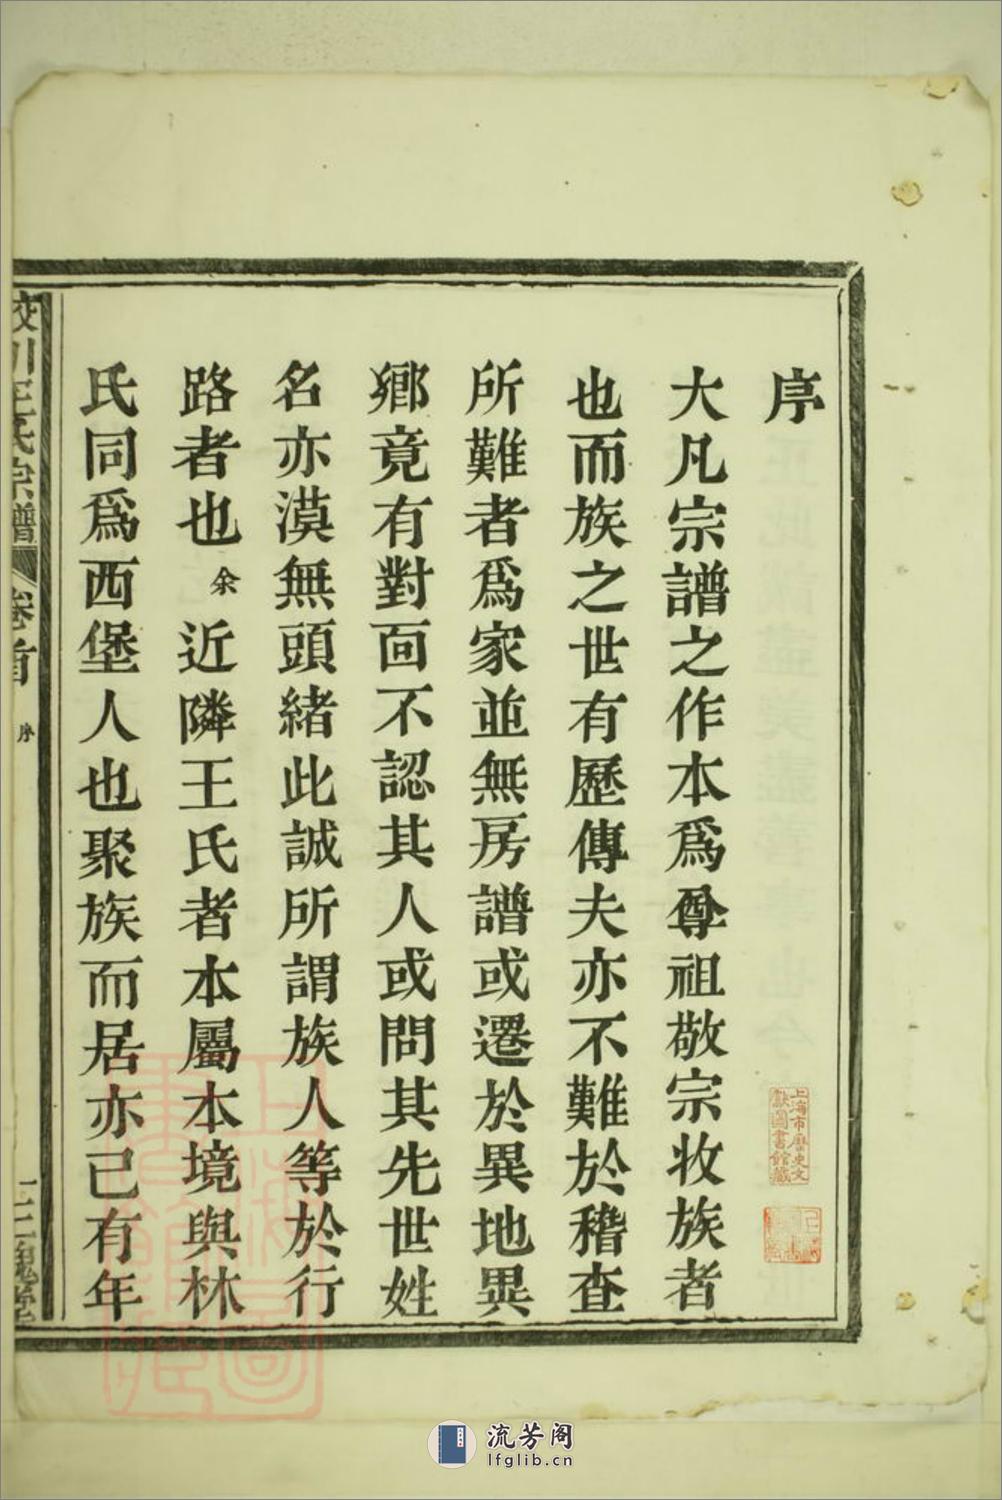 序
大凡宗譜之作本爲尊祖敬宗收族者
也而族之世有歷傳夫亦不難於稽查
所難者爲家並無房譜或遷於異地異
鄉竟有對面不認其人或問其先世姓
名亦漠無頭緒此誠所謂族人等於行
路者也余近隣王氏者本屬本境與林
氏同爲西堡人也聚族而居亦已有年
川王氏宗譜 卷首 序 三槐堂
上海市歷史文
獻圖書館藏
流芳阁
lfglib.cn